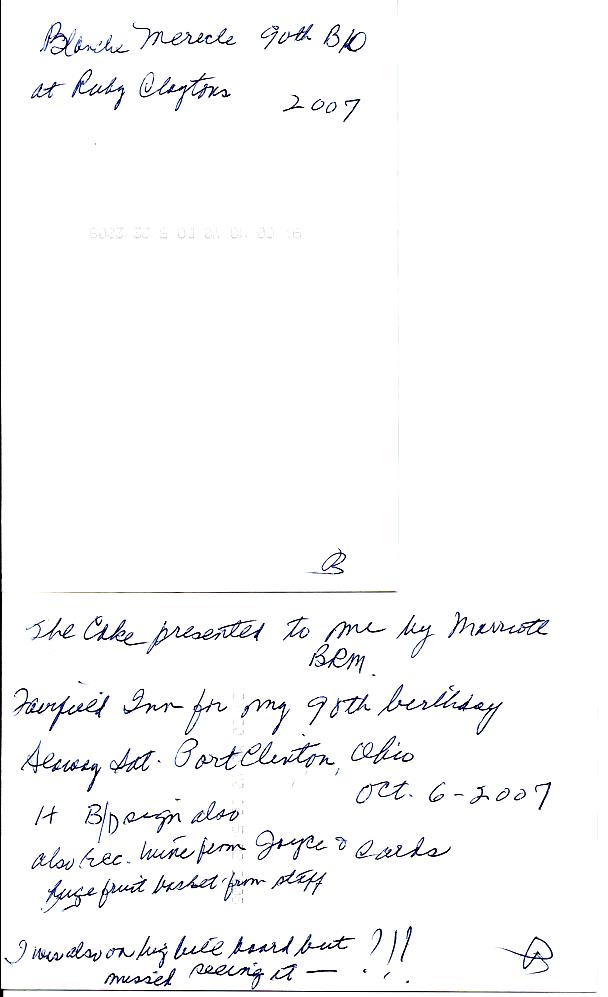 Blanche Merecle 90th B/D
at Ruby Claytons
2007
B
The Cake presented to me by Marriott
BRM.
Fairfield Inn for my 90th birthday
Sat. Port Clinton, Ohio
Oct. 6-2007
H B/D sign also
also rec. wine from Joyce & Cards
Huge fruit basket from staff
I was also on big bill board but !!!
missed seeing it —
B